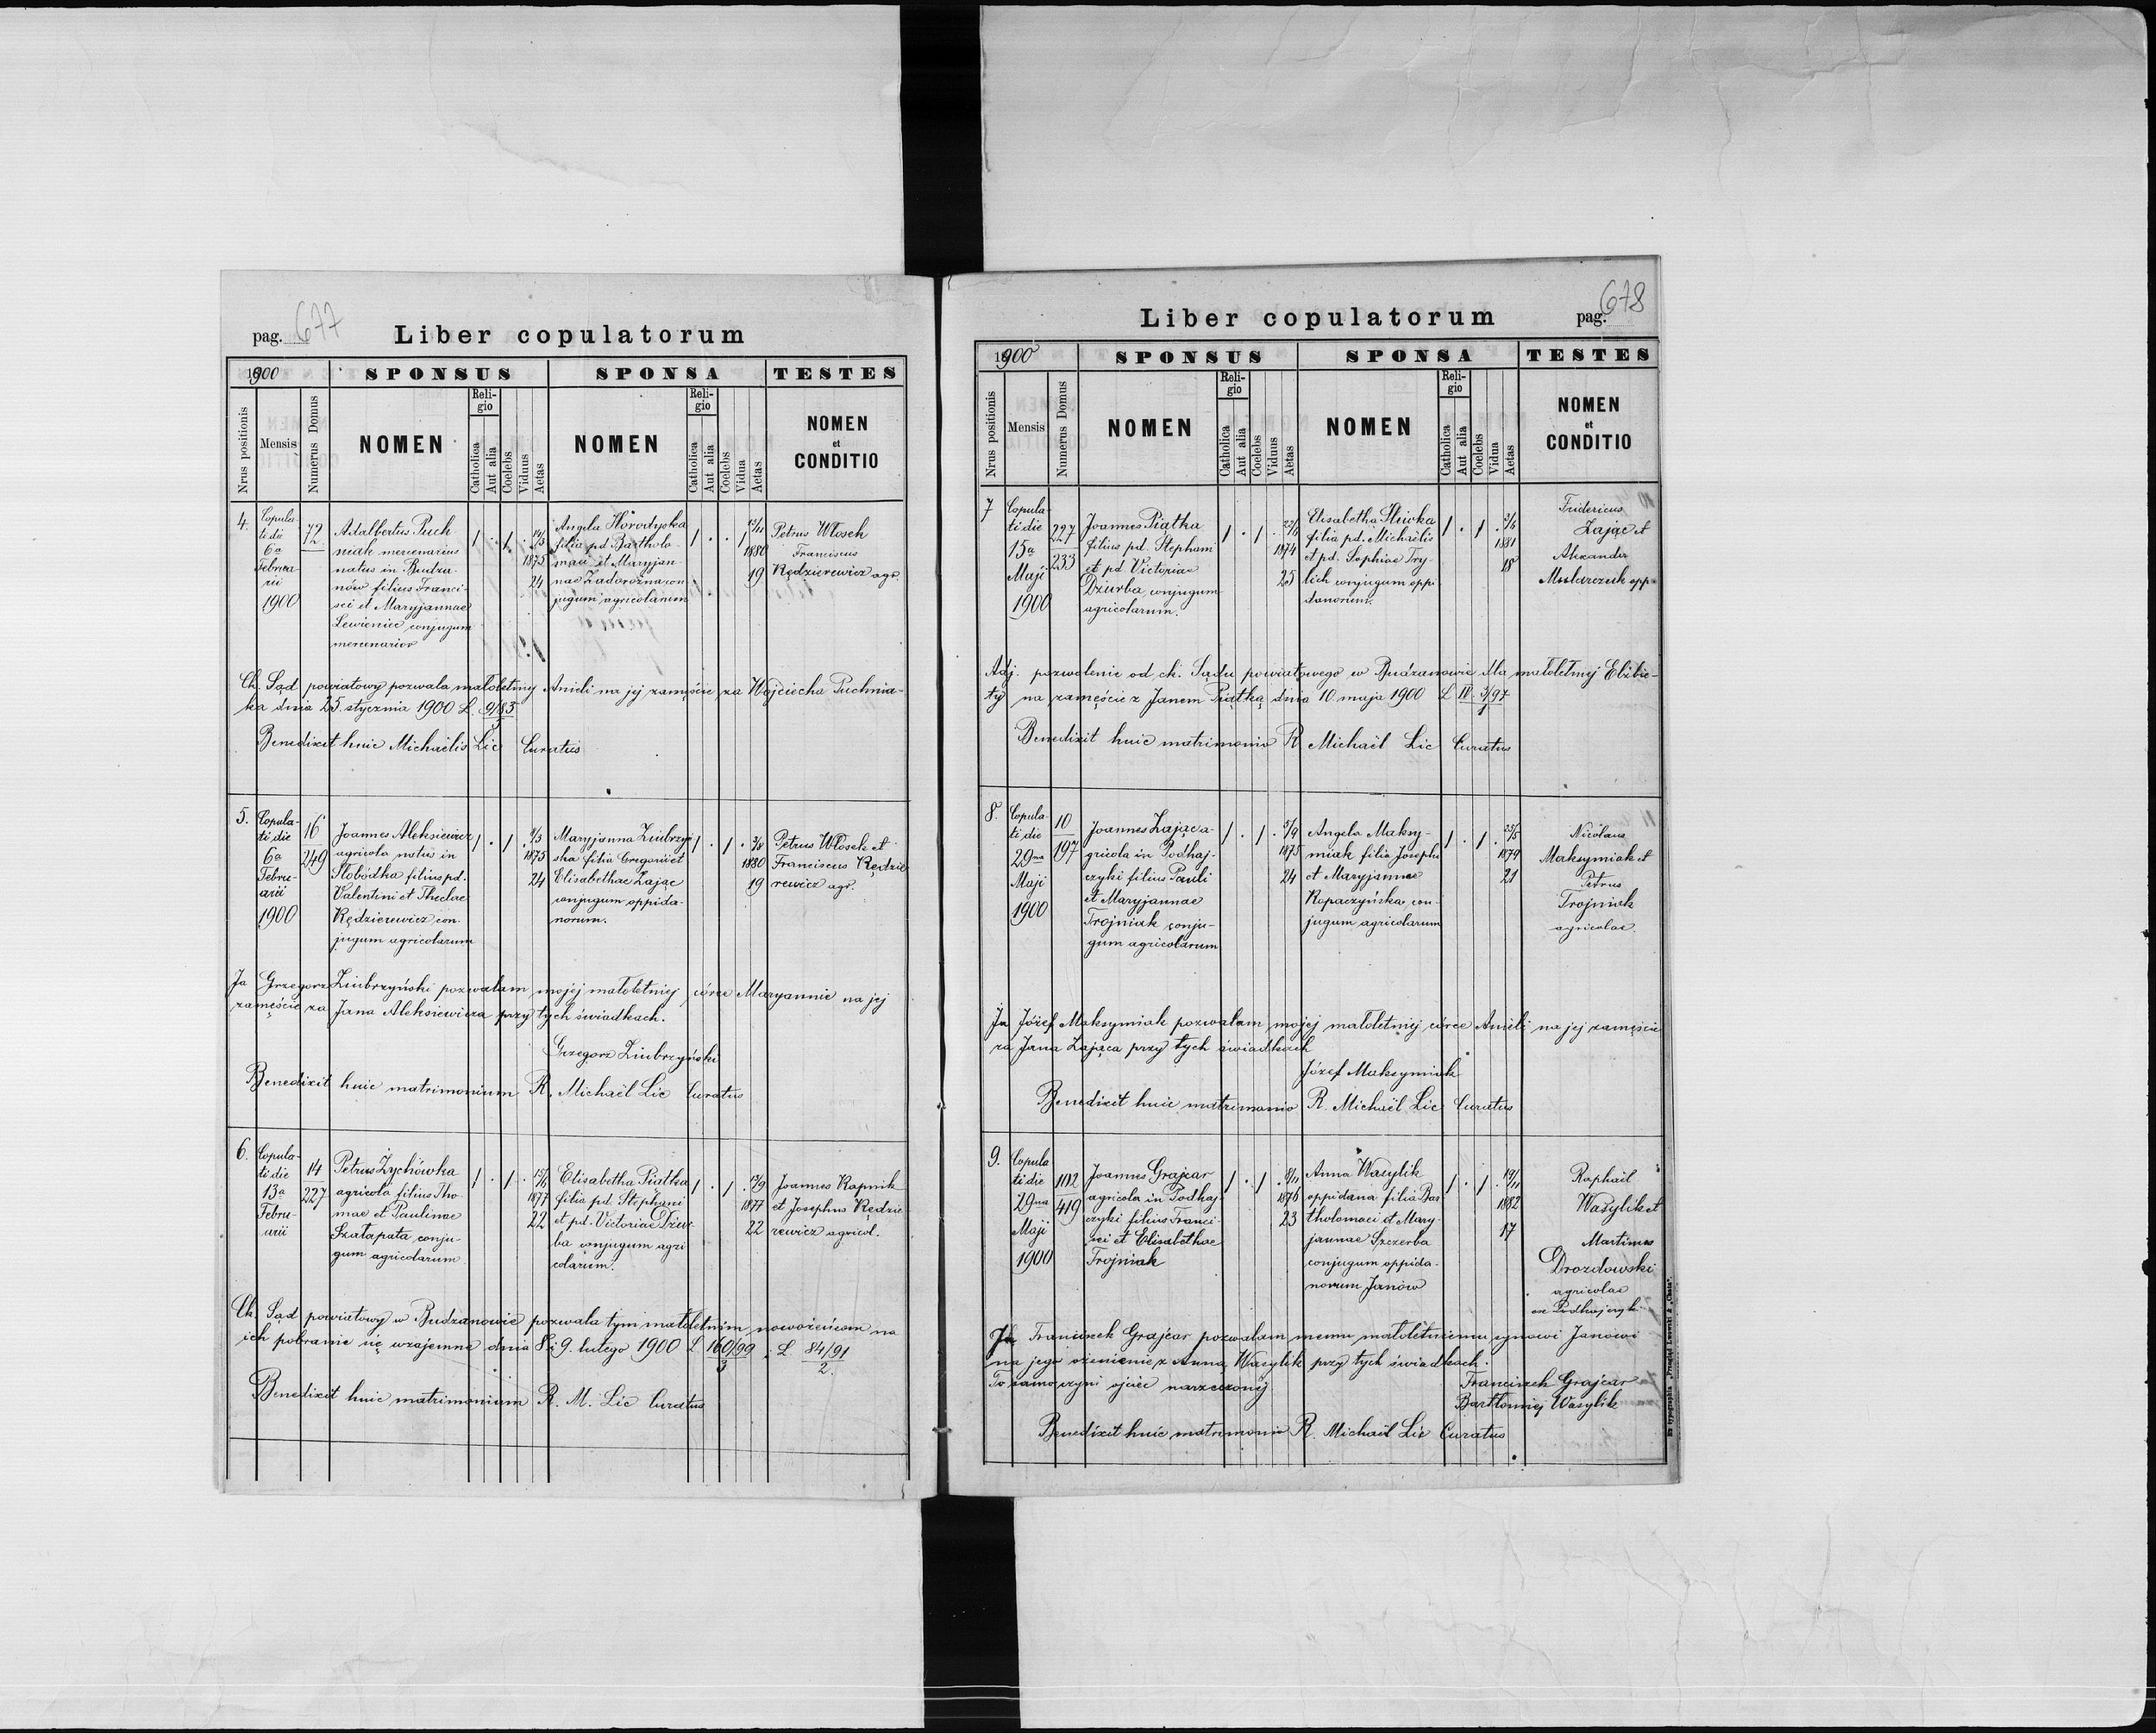 pag. 677
Liber copulatorum
1900
SPONSUS
SPONSA
TESTES
Nrus positionis
Mensis
Numerus Domus
NOMEN
Reli-
gio
Catholica
Aut alia
Coelebs
Viduus
Aetas
NOMEN
Reli-
gio
Catholica
Aut alia
Coelebs
Vidua
Aetas
NOMEN
et
CONDITIO
4.
Copula-
ti die
6a
Februa-
rii
1900
72
Adalbertus Puch
niak mercenarius
natus in Budza-
nów filius Franci-
sci et Maryjannae
Lewieniec conjugum
mercenarior
1 . 1 .
14/5
1875
24
Angela Horodyska
filia pd Bartholo-
maei et Maryjan
nae Zadorożna con
jugum agricolarum
1 . . 1
13/11
1880
19
Petrus Włosek
Franciscus
Kędzierewicz agr.
Ck. Sąd powiatowy pozwala małoletniej Anieli na jej zamęście za Wojciecha Puchnia-
ka dnia 25. stycznia 1900 L. 9/83
5
Benedixit huic Michaëlis Lic Curatus
5.
Copula-
ti die
6a
Febru-
arii
1900
16
249
Joannes Aleksiewicz
agricola natus in
Słobódka filius pd.
Valentini et Theclae
Kędzierewicz con-
jugum agricolarum
1 . 1 .
9/3
1875
24
Maryjanna Ziubrzyń
ska filia Gregorii et
Elisabethae Zając
conjugum oppida-
norum.
1 . 1 .
3/8
1880
19
Petrus Włosek et
Franciscus Kędzie
rewicz agr.
Ja Grzegorz Ziubrzyński pozwalam mojej małoletniej córce Maryannie na jej
zamęście za Jana Aleksiewicza przy tych świadkach.
Grzegorz Ziubrzyński
Benedixit huic matrimonium R. Michaël Lic Curatus
6.
Copula-
ti die
13a
Febru-
arii
14
227
Petrus Zychówka
agricola filius Tho-
mae et Paulinae
Szatapata conju-
gum agricolarum
1 . 1 .
1877
22
Elisabetha Piatka
filia pd. Stephani
et pd. Victoriae Dziur-
ba conjugum agri
colarum.
1 . 1 .
13/9
1877
22
Joannes Kapnik
et Josephus Kędzie
rewicz agricol.
Ck. Sąd powiatowy w Budzanowie pozwala tym małoletnim nowożeńcom na
ich pobranie się wzajemne dnia 8 i 9. lutego 1900 L 160/99 . L. 84/91
3 2.
Benedixit huic matrimonium R. M. Lic Curatus
Liber copulatorum
pag. 678
1900
SPONSUS
SPONSA
TESTES
Nrus positionis
Mensis
Numerus Domus
NOMEN
Reli-
gio
Catholica
Aut alia
Coelebs
Viduus
Aetas
NOMEN
Reli-
gio
Catholica
Aut alia
Coelebs
Vidua
Aetas
NOMEN
et
CONDITIO
7
Copula-
ti die
15a
Maji
1900
227
233
Joannes Piatka
filius pd. Stephani
et pd Victoriae
Dziurba conjugum
agricolarum.
1 . 1 .
1874
25
Elisabetha Śliwka
filia pd. Michaëlis
et pd. Sophiae Try-
lich conjugum oppi
danorum.
1 . 1 .
3/6
1881
18
Fridericus
Zając et
Alexander
Muślarczuk opp.
Adj. pozwolenie od ck. Sadu powiatowego w Budzanowie dla małoletniej Elżbie-
ty na zamęście z Janem Piątką dnia 10. maja 1900 L IV. 3/97
1
Benedixit huic matrimonio R Michaël Lic Curatus
8.
Copula-
ti die
29na
Maji
1900
10
197
Joannes Zając a-
gricola in Podhaj-
czyki filius Pauli
et Maryjannae
Trojniak conju-
gum agricolarum
1 . 1 .
5/9
1875
24
Angela Maksy-
miak filia Josephi
et Maryjannae
Kopaczyńska con-
jugum agricolarum
1 . 1 .
25/5
1879
21
Nicolaus
Maksymiak et
Petrus
Trojniak
agricolae.
Ja Józef Maksymiak pozwalam mojej małoletniej córce Anieli na jej zamęście
za Jana Zająca przy tych świadkach
Józef Maksymiak
Benedixit huic matrimonio R. Michaël Lic Curatus
9.
Copula
ti die
29na
Maji
1900
102
419
Joannes Grajcar
agricola in Podhaj-
czyki filius Franci-
sci et Elisabethae
Trojniak
1 . 1 .
8/11
1876
23
Anna Wasylik
oppidana filia Bar
tholomaei et Mary-
jannae Szczerba
conjugum oppida-
norum Janów
1 . 1 .
19/11
1882
17
Raphaël
Wasylik et
Martinus
Drozdowski
agricolae
ex Podhajczyk
Ja Franciszek Grajcar pozwalam memu małoletniemu synowi Janowi
na jego ożenienie z Anną Wasylik przy tych świadkach.
To samo czyni ojciec narzeczonej
Franciszek Grajcar
Bartłomiej Wasylik
Benedixit huic matrimonio R. Michaël Lic Curatus
Ex typographia „Przegląd Lwowski & „Chata".